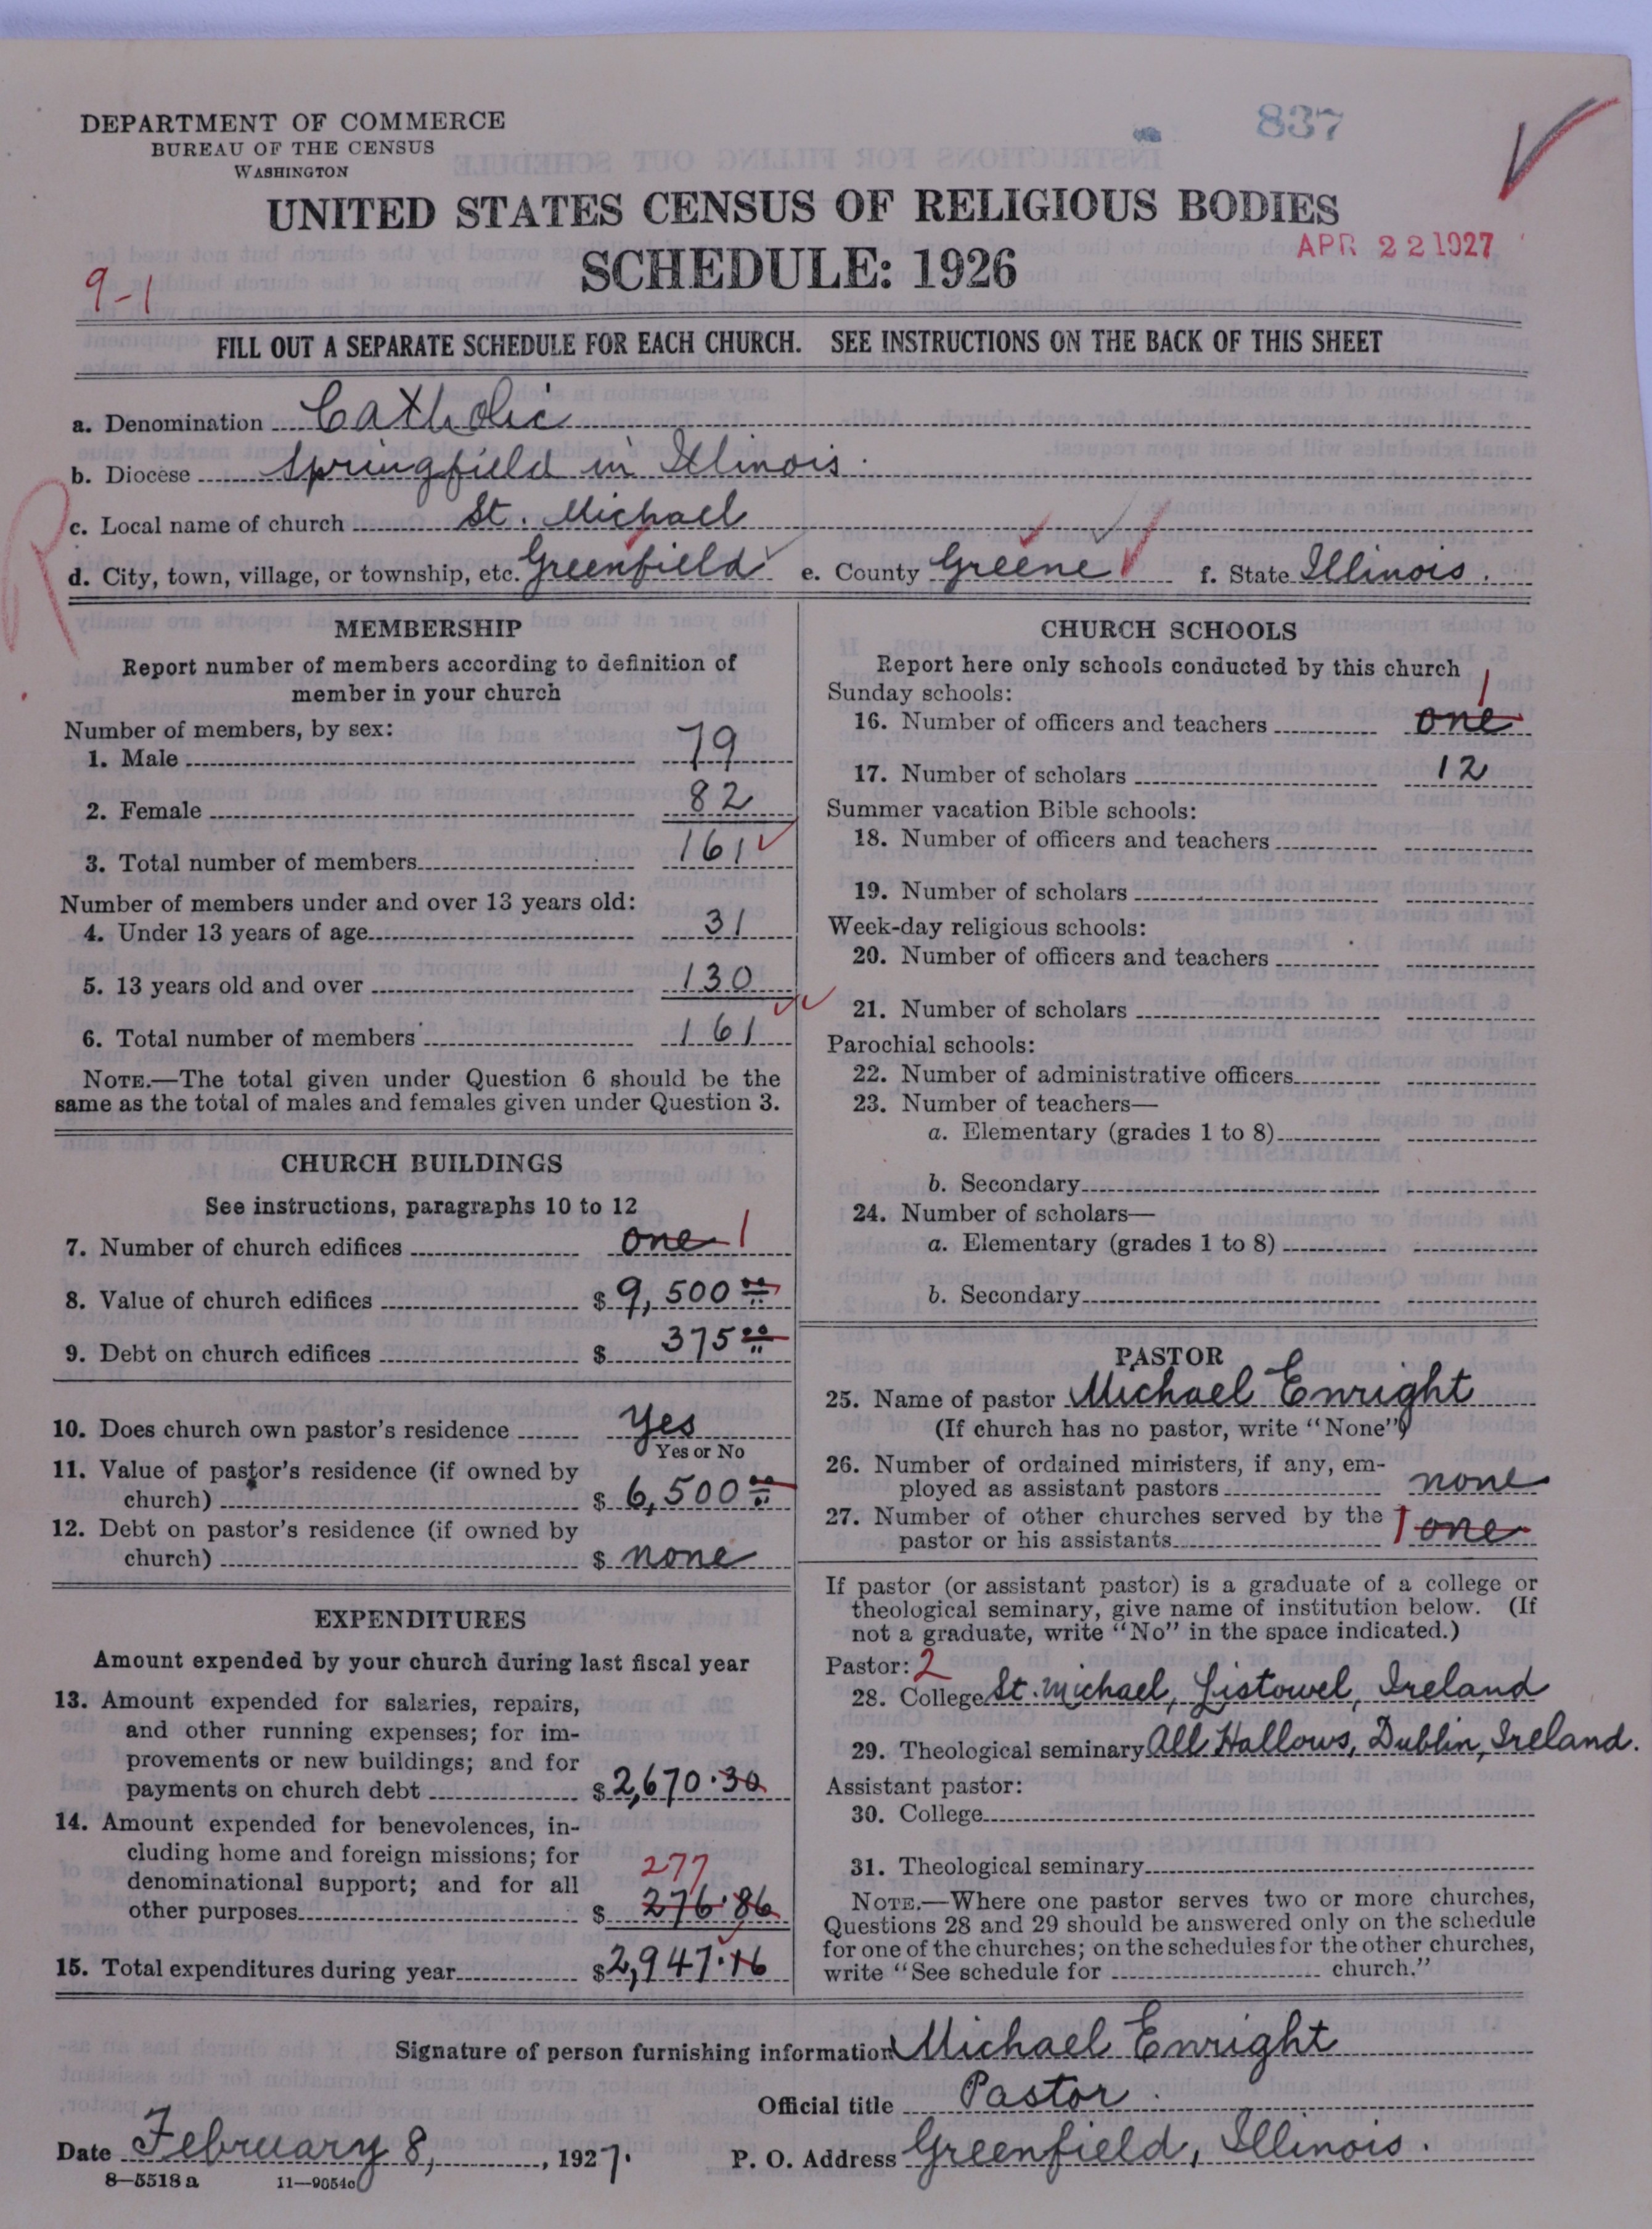 DEPARTMENT OF COMMERCE
BUREAU OF THE CENSUS
WASHINGTON
837
UNITED STATES CENSUS OF RELIGIOUS BODIES
SCHEDULE: 1926
APR 22 1927
9-1
FILL OUT A SEPARATE SCHEDULE FOR EACH CHURCH. SEE INSTRUCTIONS ON THE BACK OF THIS SHEET
a. Denomination Catholic
b. Diocese Springfield in Illinois.
c. Local name of church St. Michael
d. City, town, village, or township, etc. Greenfield e. County Greene f. State Illinois.
MEMBERSHIP
Report number of members according to definition of
member in your church
Number of members, by sex:
1. Male 79
2. Female 82
3. Total number of members 161
Number of members under and over 13 years old:
4. Under 13 years of age 31
5. 13 years old and over 130
6. Total number of members 161
NOTE.—The total given under Question 6 should be the
same as the total of males and females given under Question 3.
CHURCH BUILDINGS
See instructions, paragraphs 10 to 12
7. Number of church edifices one 1
8. Value of church edifices $ 9,500 00
9. Debt on church edifices $ 375 00
10. Does church own pastor's residence Yes
Yes or No
11. Value of pastor's residence (if owned by
church) $ 6,500 00
12. Debt on pastor's residence (if owned by
church) $ none
EXPENDITURES
Amount expended by your church during last fiscal year
13. Amount expended for salaries, repairs,
and other running expenses; for im-
provements or new buildings; and for
payments on church debt $ 2,670.30
14. Amount expended for benevolences, in-
cluding home and foreign missions; for
denominational support; and for all 277
other purposes $ 276.86
15. Total expenditures during year $ 2,947.16
CHURCH SCHOOLS
Report here only schools conducted by this church
Sunday schools: 1
16. Number of officers and teachers one
17. Number of scholars 12
Summer vacation Bible schools:
18. Number of officers and teachers
19. Number of scholars
Week-day religious schools:
20. Number of officers and teachers
21. Number of scholars
Parochial schools:
22. Number of administrative officers
23. Number of teachers—
a. Elementary (grades 1 to 8)
b. Secondary
24. Number of scholars—
a. Elementary (grades 1 to 8)
b. Secondary
PASTOR
25. Name of pastor Michael Enright
(If church has no pastor, write "None")
26. Number of ordained ministers, if any, em-
ployed as assistant pastors none
27. Number of other churches served by the
pastor or his assistants 1 one
If pastor (or assistant pastor) is a graduate of a college or
theological seminary, give name of institution below. (If
not a graduate, write "No" in the space indicated.)
Pastor: 2
28. College St. Michael, Listowel, Ireland
29. Theological seminary All Hallows, Dublin, Ireland.
Assistant pastor:
30. College
31. Theological seminary
NOTE.—Where one pastor serves two or more churches,
Questions 28 and 29 should be answered only on the schedule
for one of the churches; on the schedules for the other churches,
write "See schedule for church."
Signature of person furnishing information Michael Enright
Official title Pastor.
Date February 8, 1927. P. O. Address Greenfield, Illinois.
8—5518 a 11—9054c